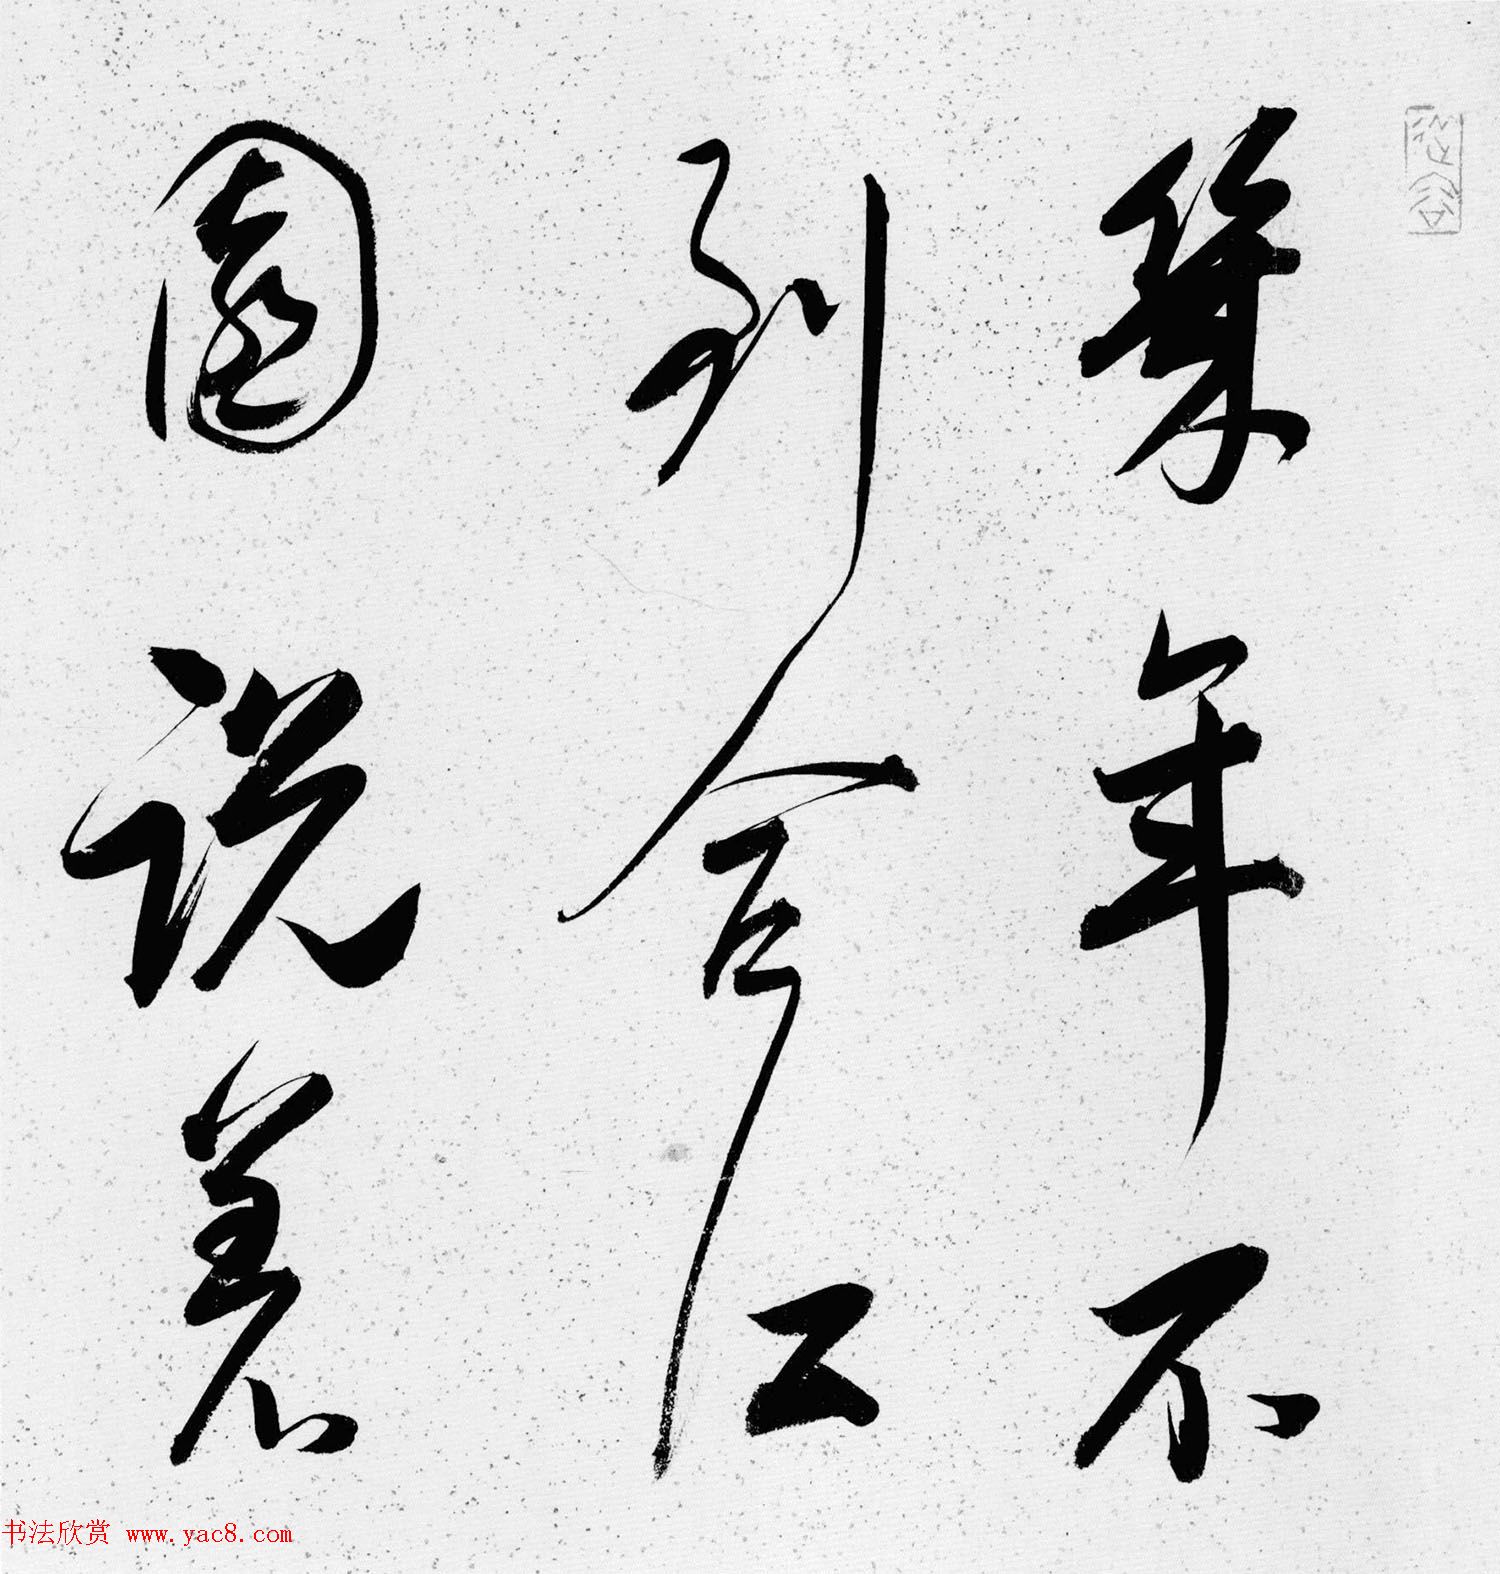 幾年不
到合江
園說著
书法欣赏 www.yac8.com